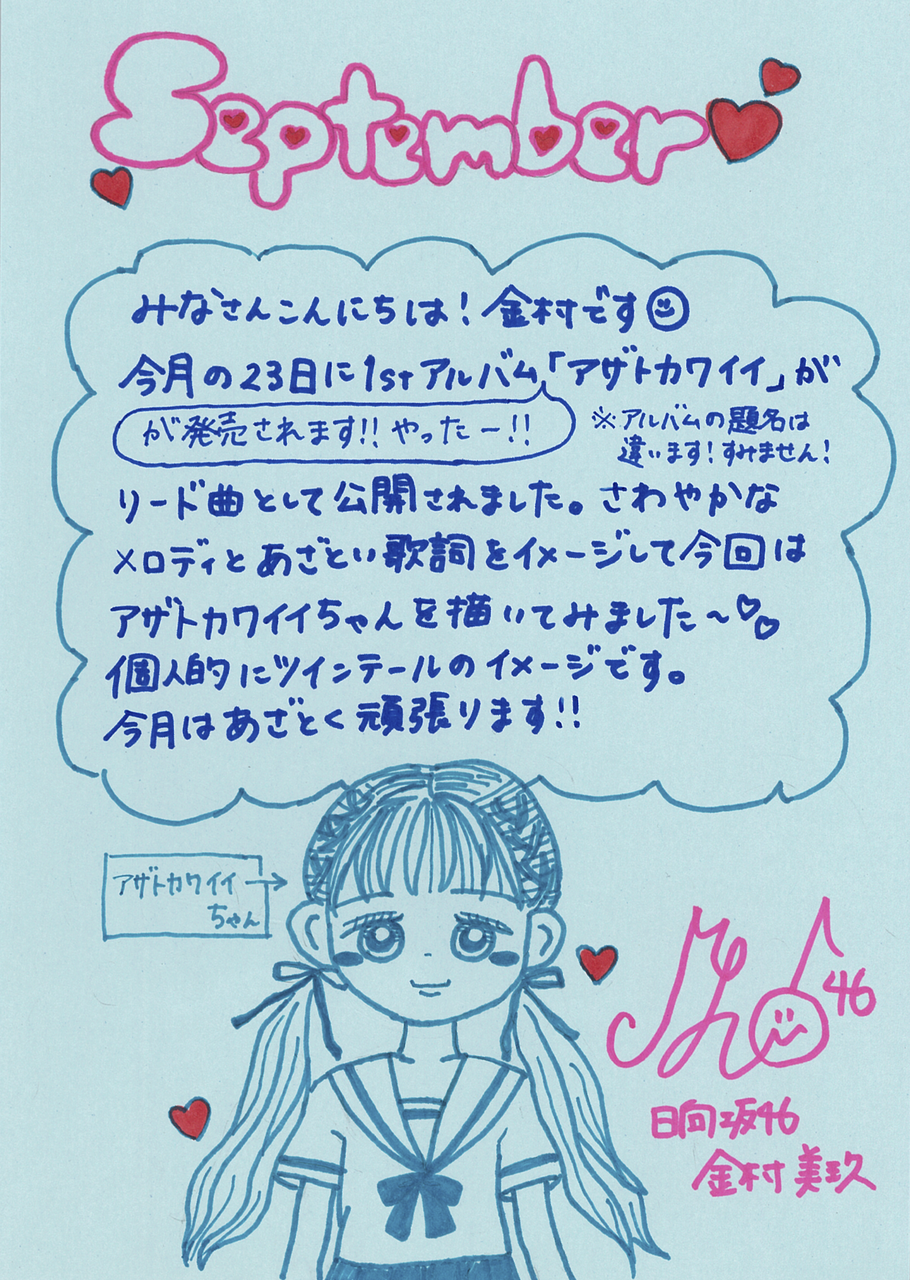 September
みなさんこんにちは！金村です
今月の23日に1stアルバム「アザトカワイイ」が
が発売されます!!やったー!!
※アルバムの題名は
違います！すみません！
リード曲として公開されました。さわやかな
メロディとあざとい歌詞をイメージして今回は
アザトカワイイちゃんを描いてみました〜♡♡
個人的にツインテールのイメージです。
今月はあざとく頑張ります!!
アザトカワイイ
ちゃん
46
日向坂46
金村美玖